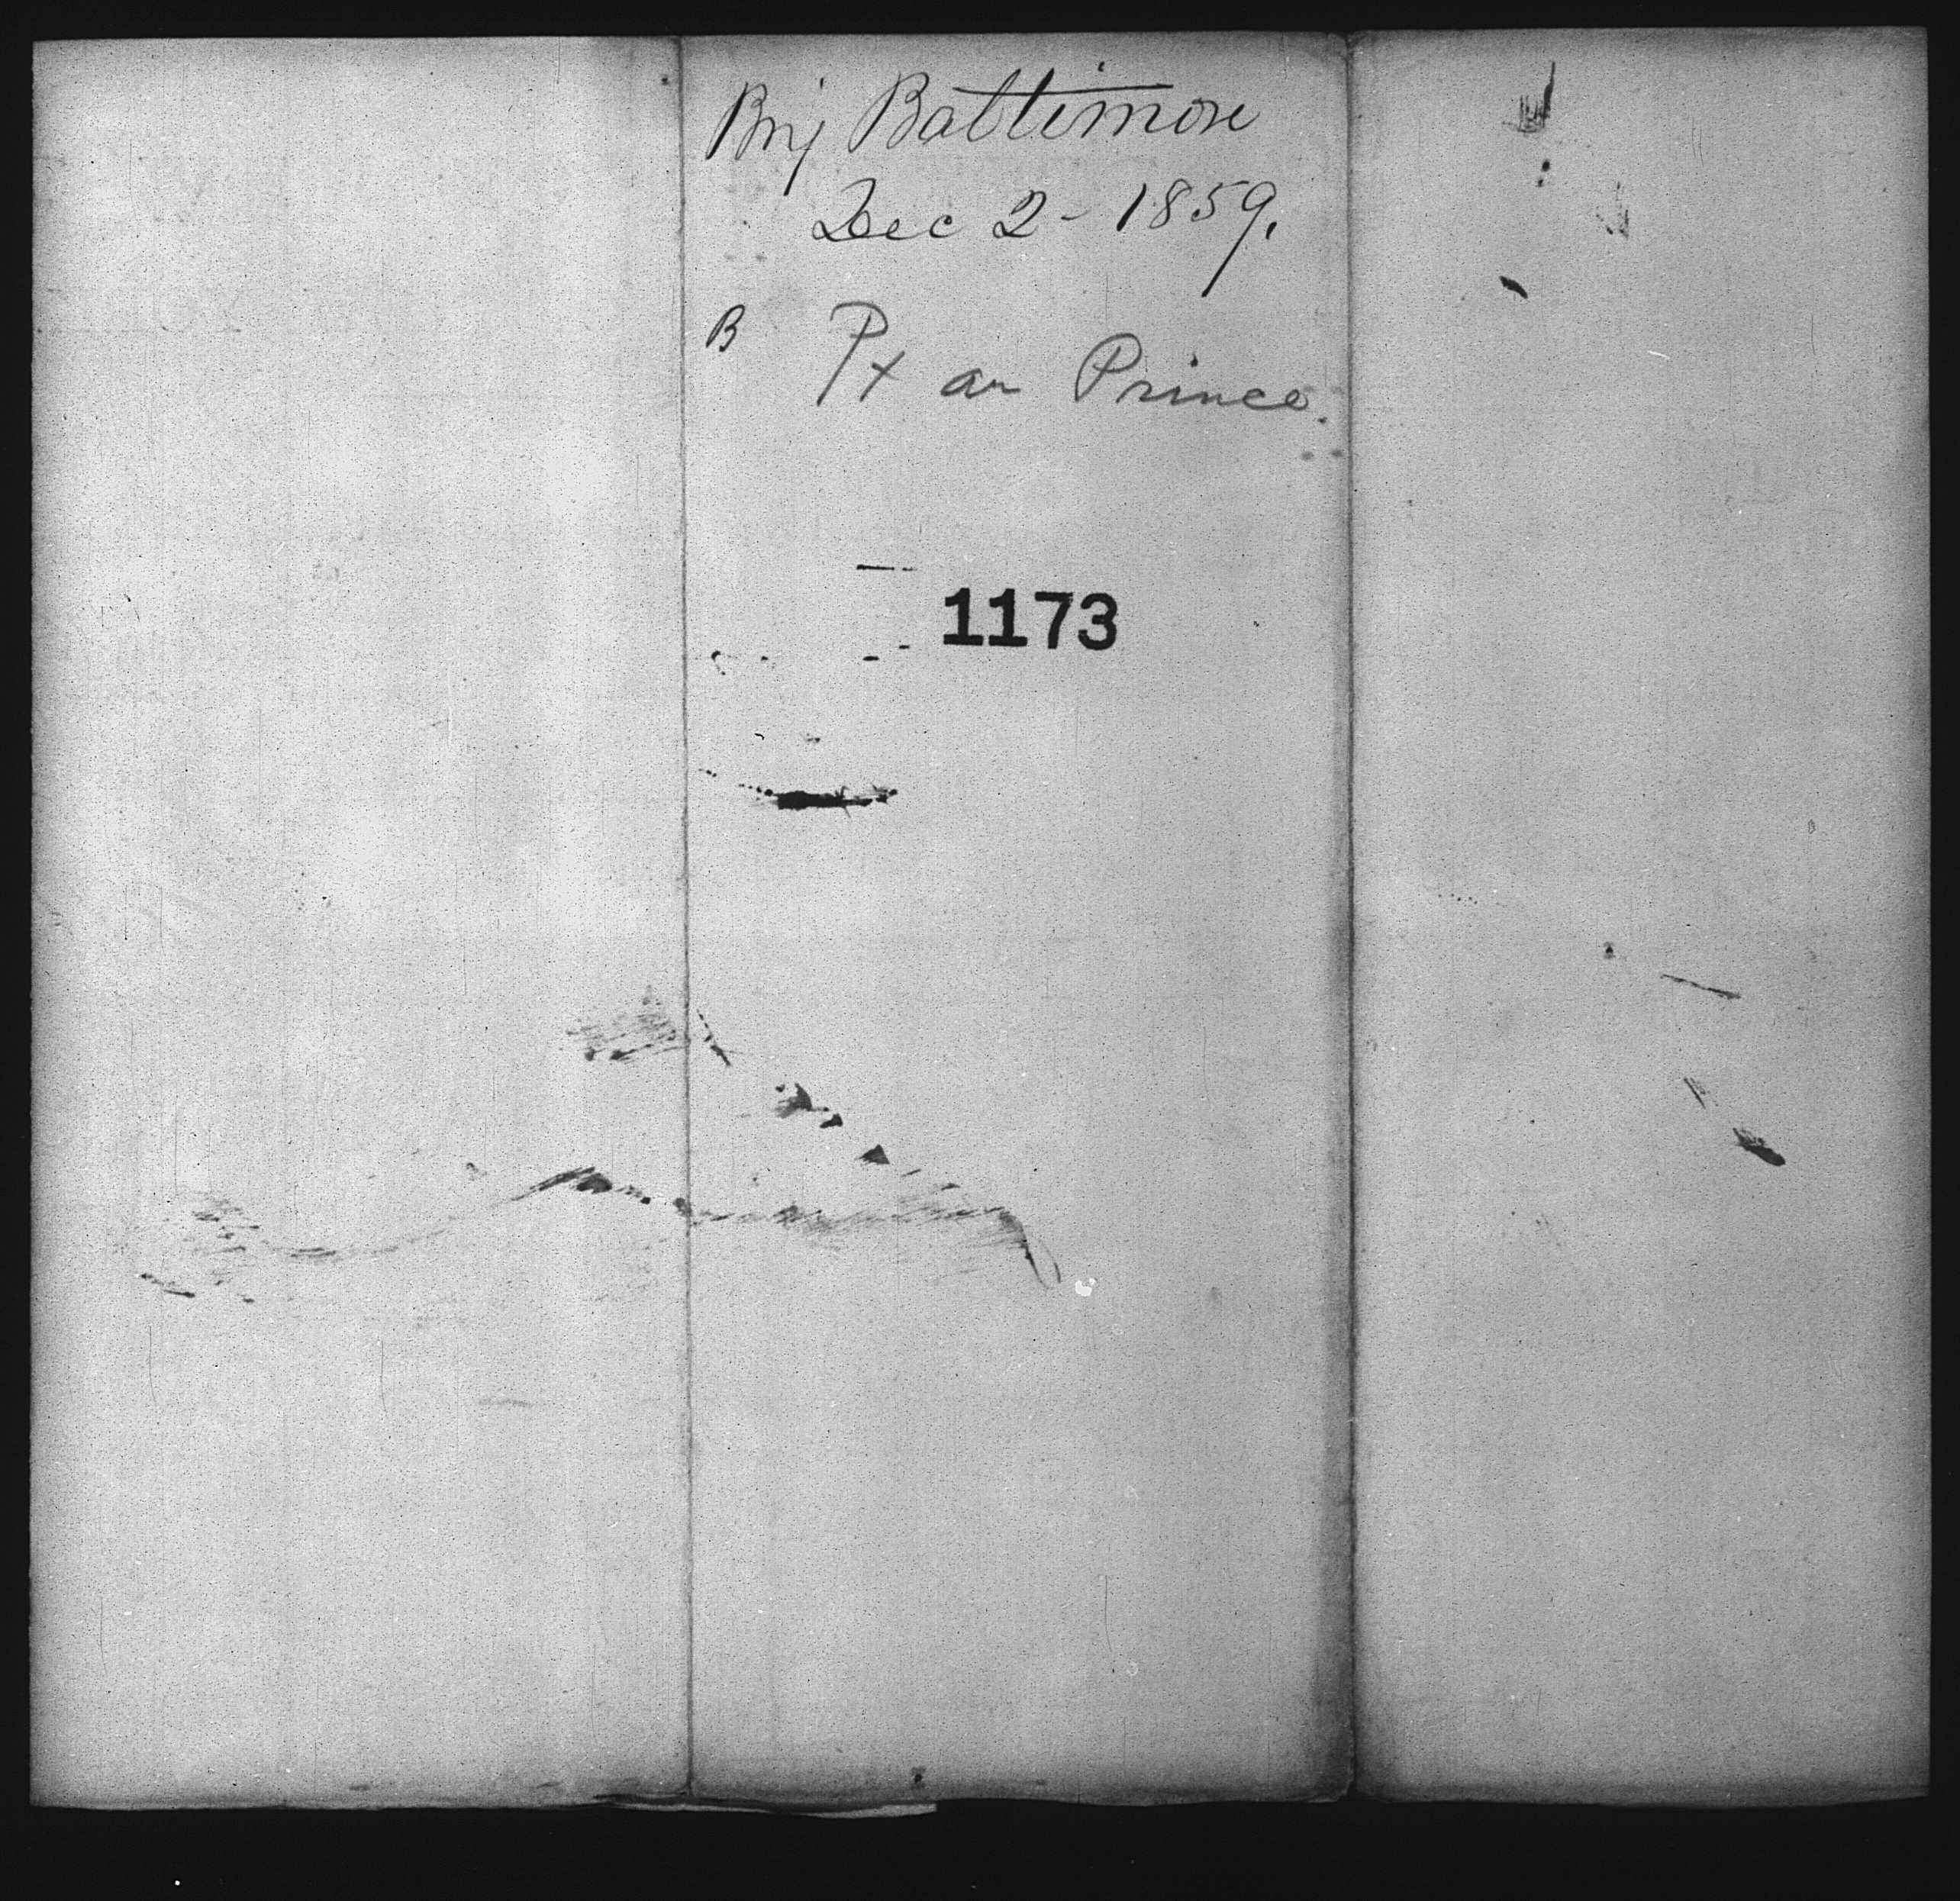 Brig Baltimore
Dec 2 - 1859.
B Pt au Prince.
1173